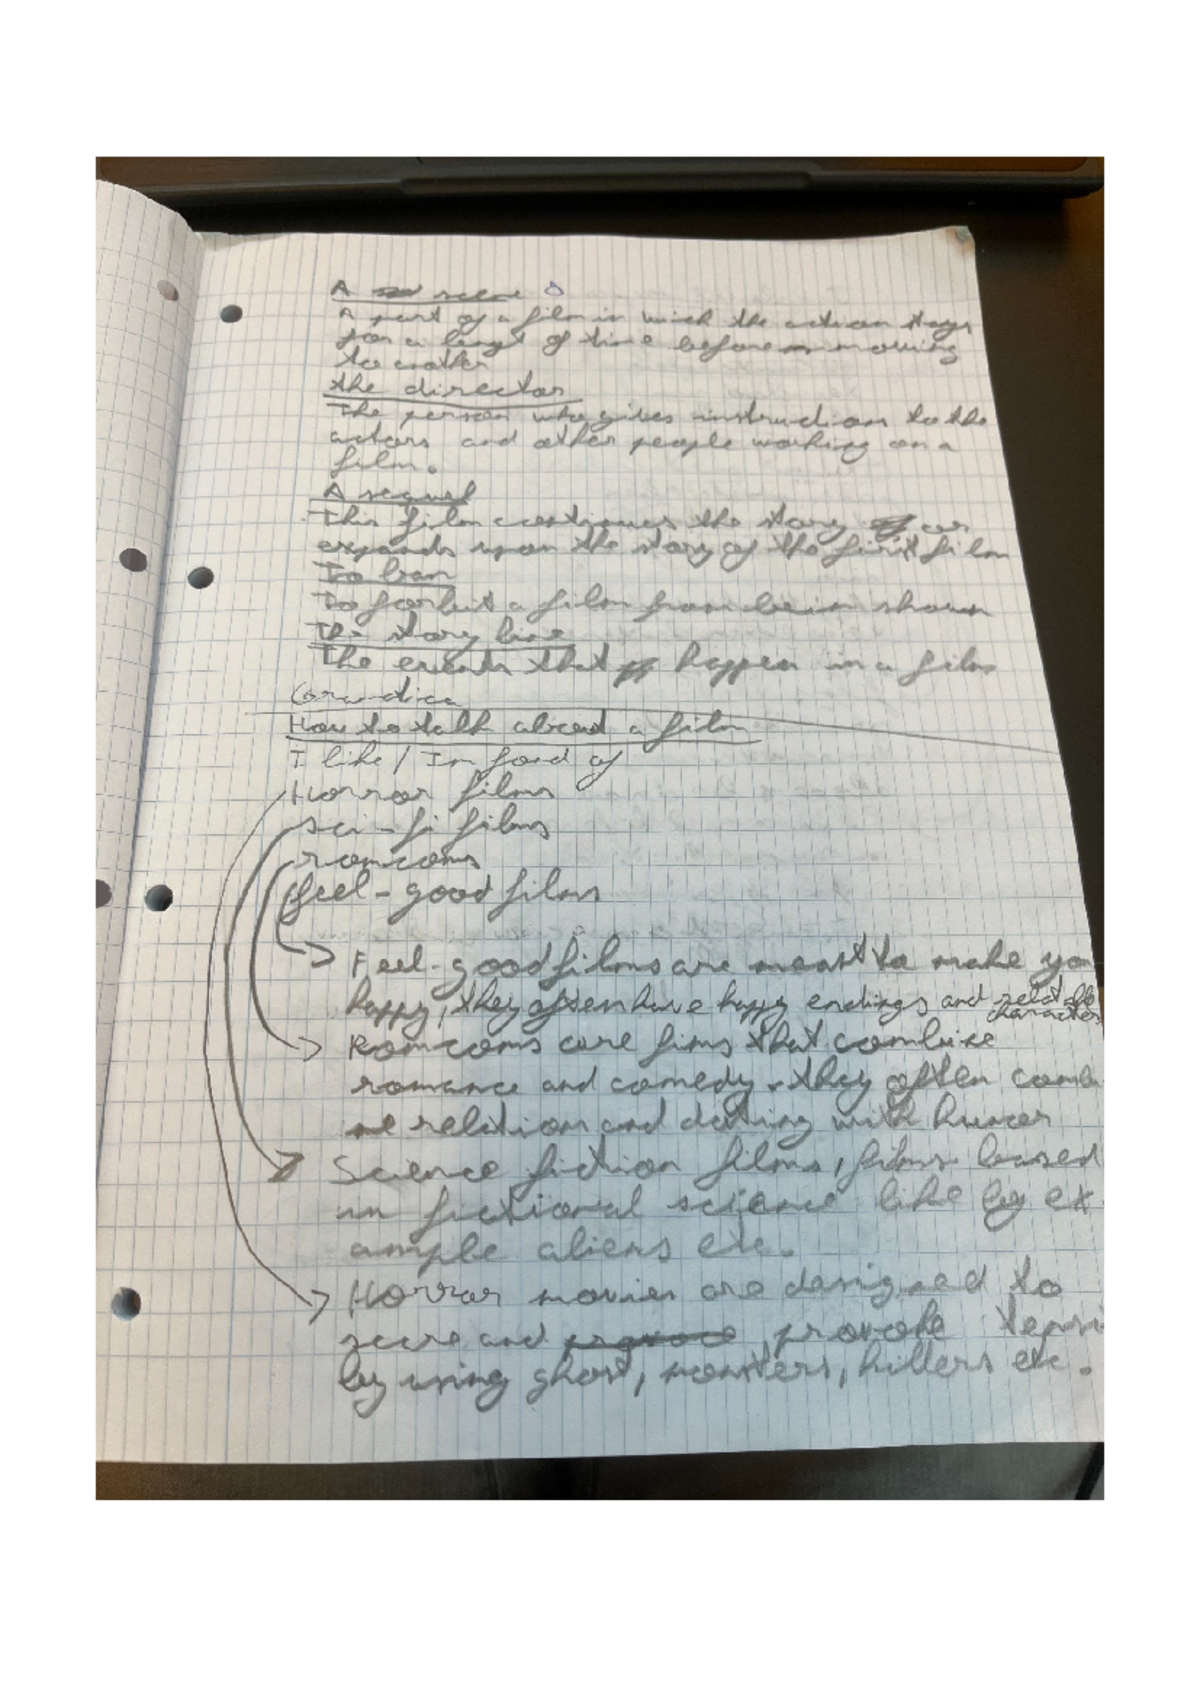 A scene
A part of a film in wich the action stays
for a lengt of time before moving
to another
the director
The person who gives instruction to the
actors and other people working on a
film.
A sequel
This film continues the story or
expands upon the story of the first film
To ban
To forbit a film from bein shown
The story line
The events that happen in a film
How to talk about a film
I like / Im fond of
Horror films
sci-fi films
romcoms
feel-good films
Feel-good films are meant to make you
happy, they often have happy endings and relatable
characters
Romcoms are fims that combine
romance and comedy. they often comb
ne relation and dating with humor
Science fiction films, films based
in fictional science like by ex
ample aliens etc.
Horror movies are designed to
scare and provoke tensi
by using ghost, monsters, killers etc.